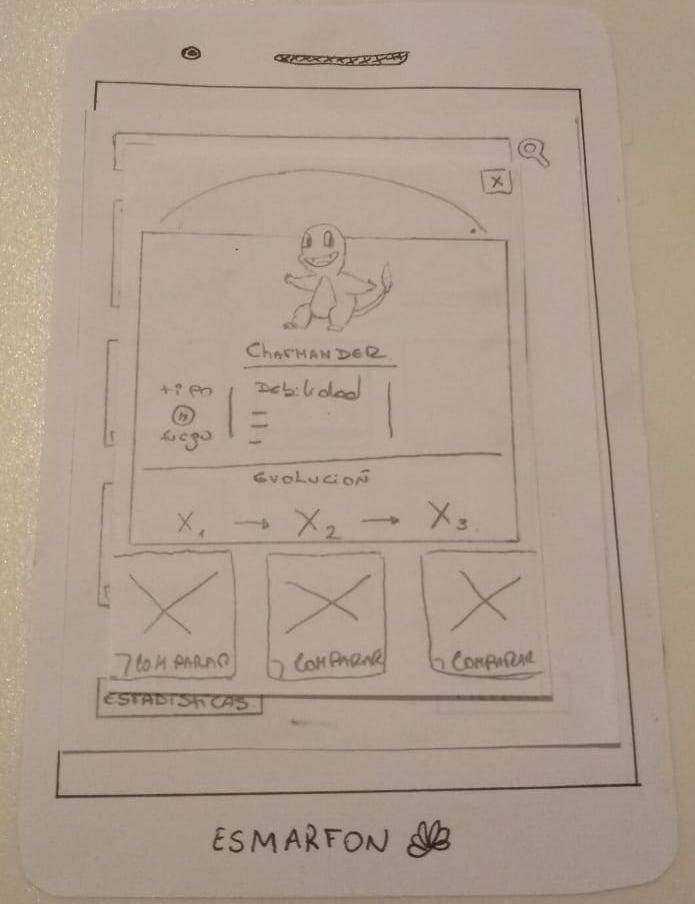 X
CHARMANDER
tipo
Debilidad
fuego
EVOLUCIOÑ
X1 → X2 → X3
COMPARAR
COMPARAR
COMPARAR
ESTADISTICAS
ESMARFON